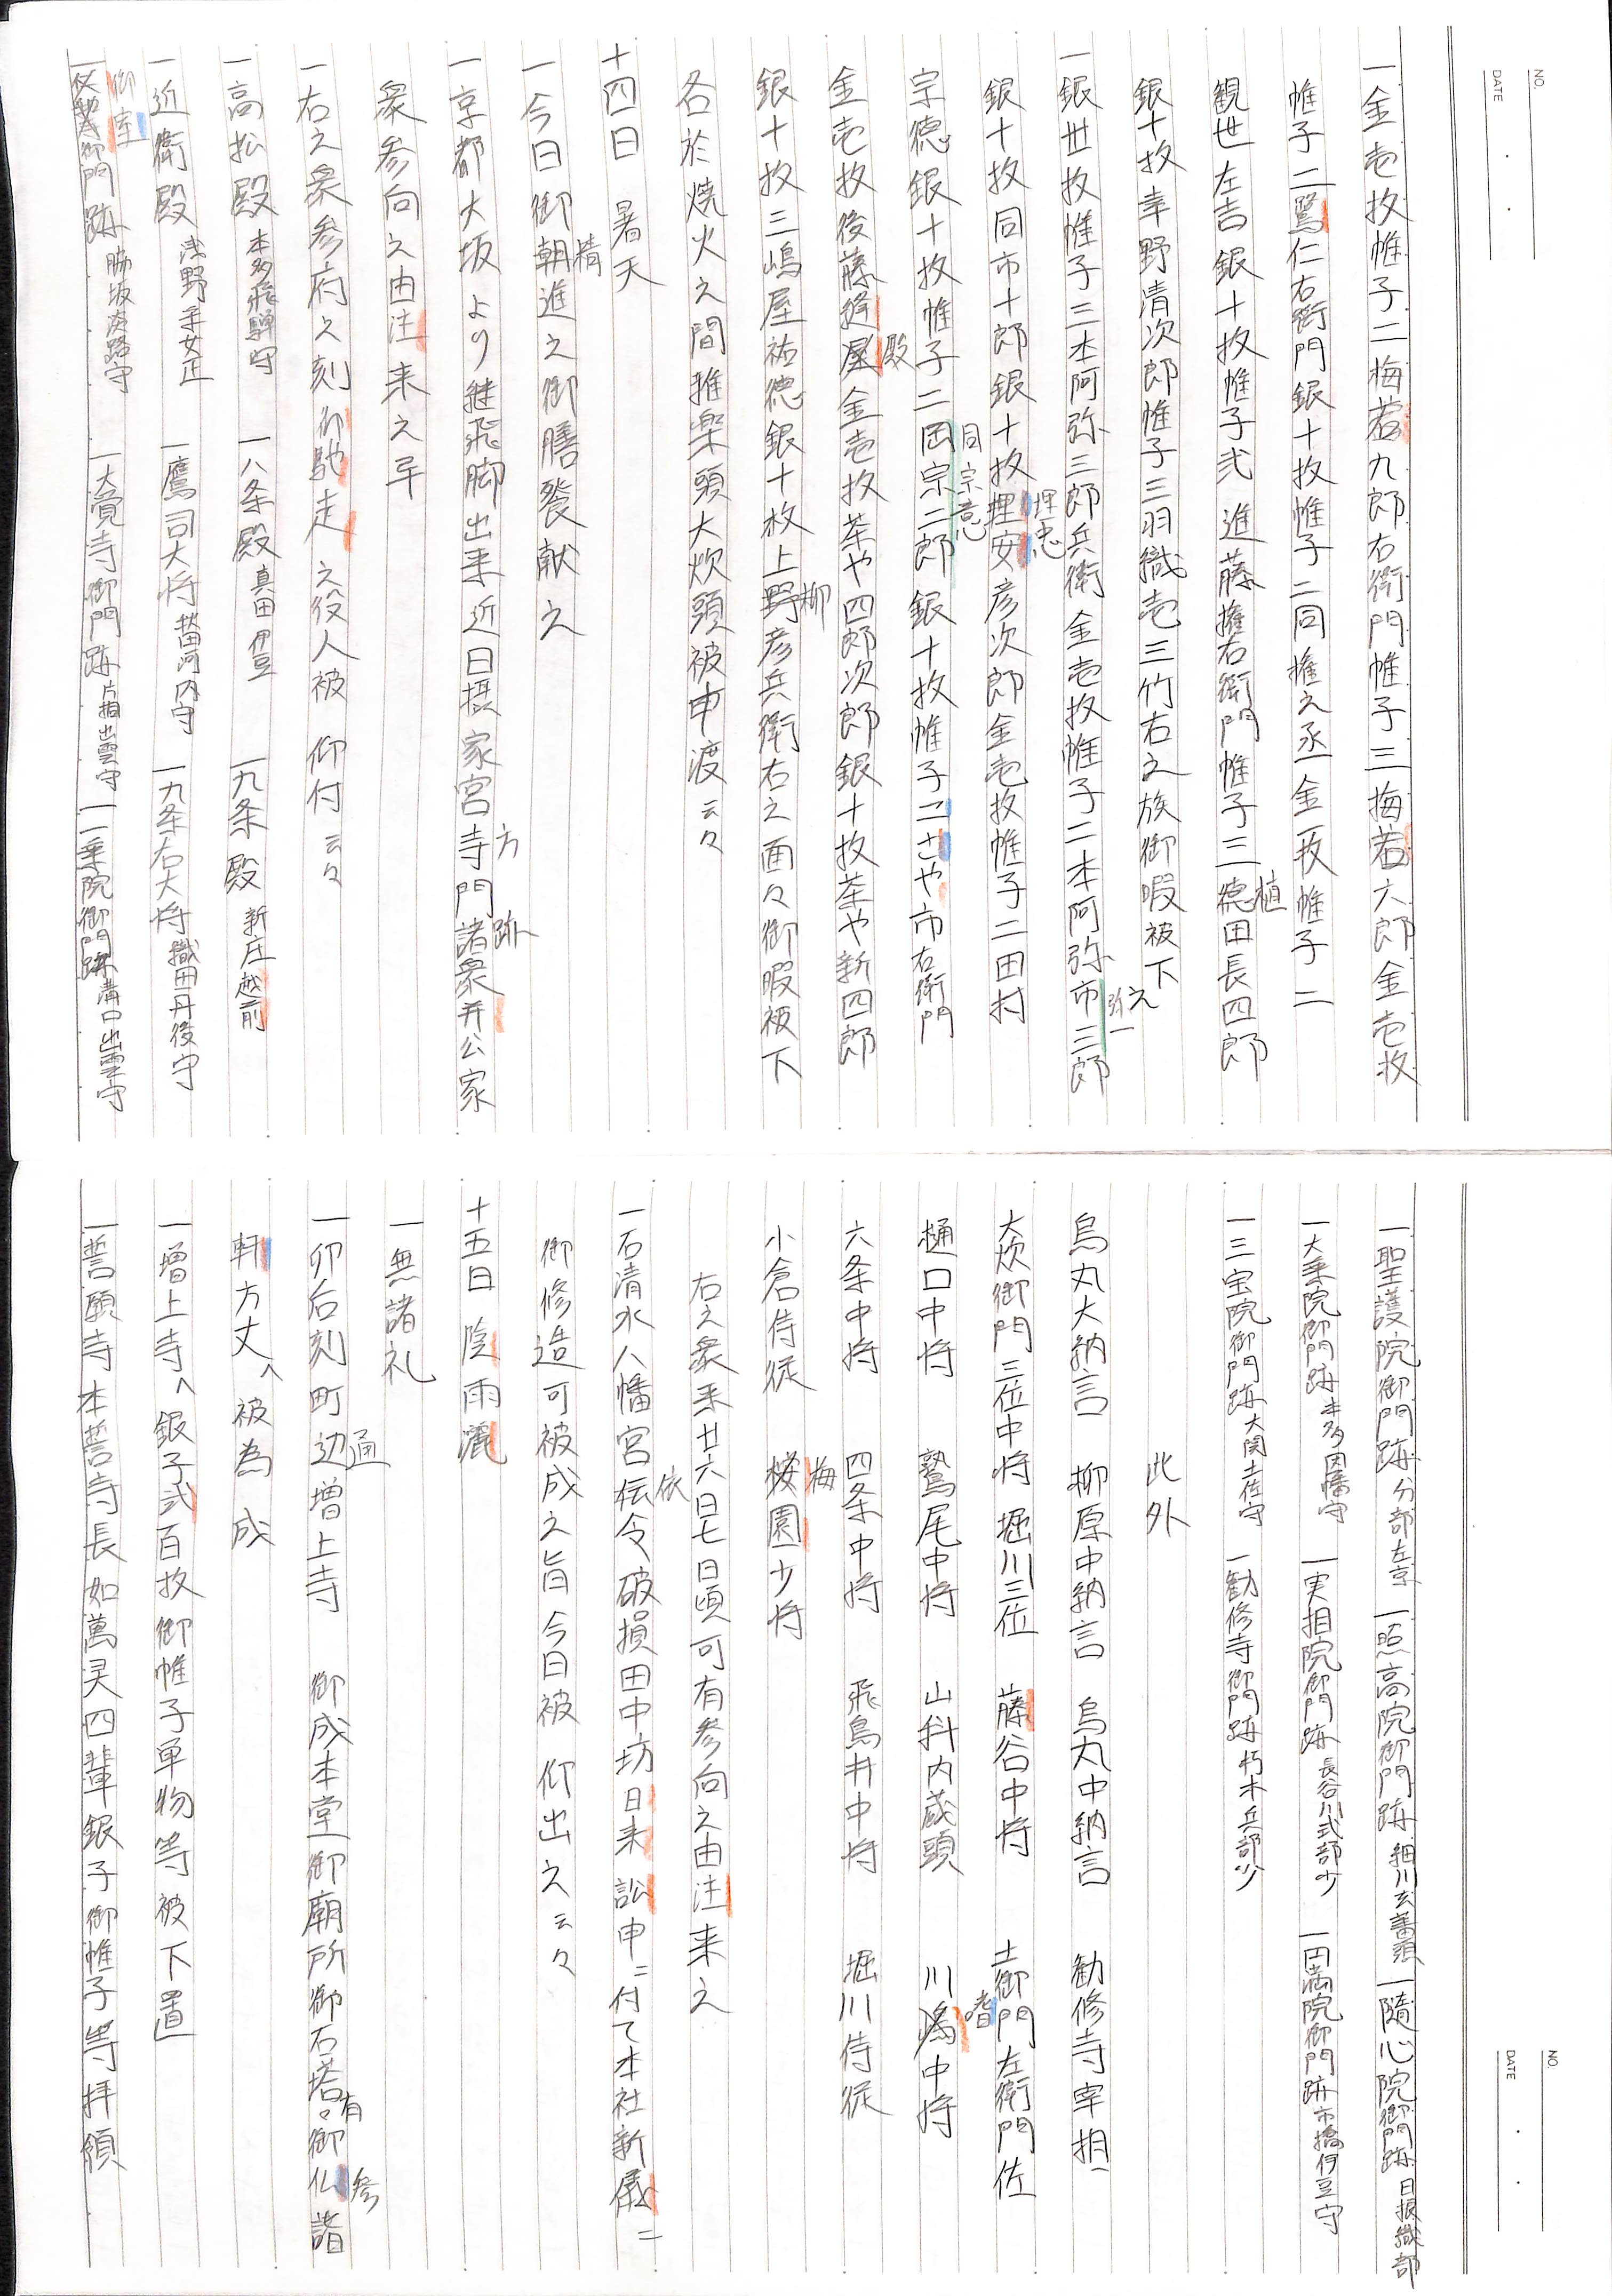 NO.
DATE
一金壱枚帷子二梅若九郎右衛門帷子三梅若六郎金壱枚
帷子二鷺仁右衛門銀十枚帷子二同権之丞金一枚帷子二
観世左吉銀十枚帷子弐 進藤権右衛門帷子三徳田長四郎
植
銀十枚幸野清次郎帷子三羽織壱三竹右之族御暇被下之
一銀丗枚帷子三本阿弥三郎兵衛金壱枚帷子二本阿弥市三郎
弥一
銀十枚同市十郎銀十枚埋安彦次郎金壱枚帷子二田村
埋忠
宗徳銀十枚帷子二岡宗二郎銀十枚帷子二さや市右衛門
同宗意
金壱枚後藤縫屋金壱枚茶や四郎次郎銀十枚茶や新四郎
殿
銀十枚三嶋屋祐徳銀十枚上野彦兵衛右之面々御暇被下
柳
各於焼火之間推楽頭大炊頭被申渡云々
十四日 暑天
一今日御朝進之御膳飱献之
精
一京都大坂より継飛脚出来近日摂家宮寺門諸衆并公家
方 跡
衆参向之由注来之早
一右之衆参府之刻御馳走之役人被 仰付云々
一高松殿 本多飛騨守 一八条殿 真田伊豆 一九条殿 新庄越前
一近衛殿 浅野采女正 一鷹司大将 秋田河内守 一九条右大将 織田丹後守
御室
御門跡 脇坂淡路守 一大覚寺御門跡 片桐出雲守 一一乗院御門跡 溝口出雲守
NO.
DATE
一聖護院御門跡 分部左京 一照高院御門跡 細川玄蕃頭 一随心院御門跡 日根織部
一大乗院御門跡 本多因幡守 一実相院御門跡 長谷川式部少 一円満院御門跡 市橋伊豆守
一三宝院御門跡 大関土佐守 一勧修寺御門跡 朽木兵部少
此外
烏丸大納言 柳原中納言 烏丸中納言 勧修寺宰相
大炊御門三位中将 堀川三位 藤谷中将 土御門左衛門佐
樋口中将 鷲尾中将 山科内蔵頭 川嶋中将
嗜
六条中将 四条中将 飛鳥井中将 堀川侍従
小倉侍従 桜園少将
梅
右之衆来廿六日七日頃可有参向之由注来之
一石清水八幡宮伝令破損田中坊日来訟申ニ付て本社新儀ニ
依
御修造可被成之旨今日被 仰出之云々
十五日 陰雨灑
一無諸礼
一卯后刻町辺増上寺 御成本堂御廟所御石塔々御仏詣
通 有 参
軒方丈へ被為 成
一増上寺へ銀子弐百枚御帷子単物等被下置
一誓願寺本誓寺長如萬灵四輩銀子御帷子等拝領